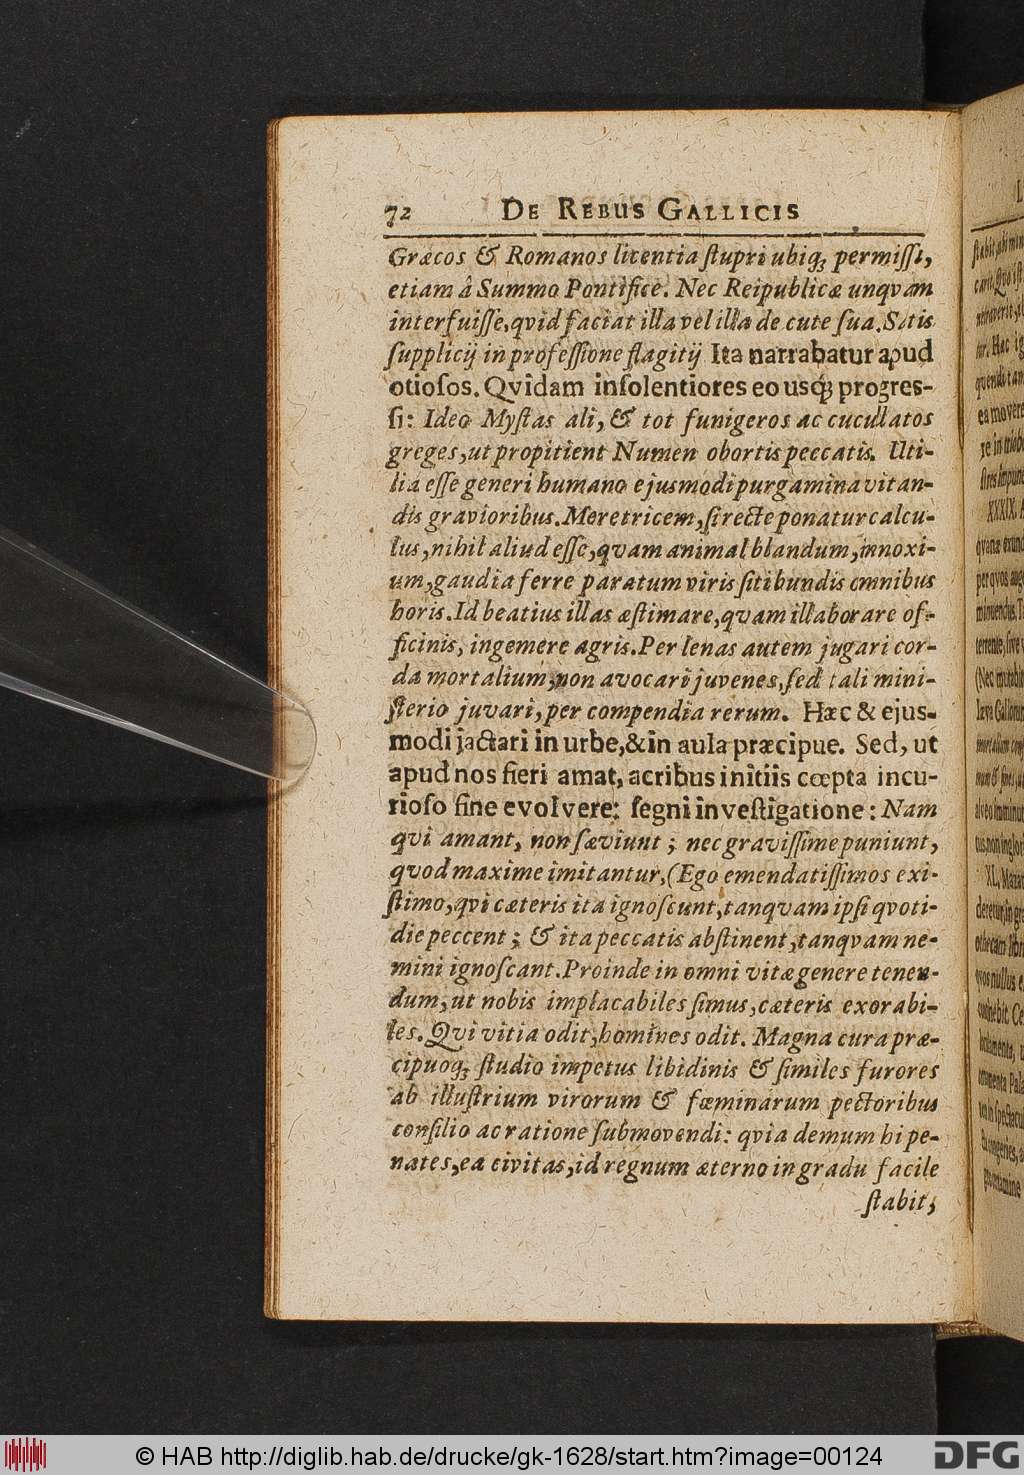 72 DE REBUS GALLICIS
Græcos & Romanos licentia ſtupri ubiq; permiſſi,
etiam â Summo Pontifice. Nec Reipublicæ unqvam
interfuiſſe, qvid faciat illa vel illa de cute ſua. Satis
ſupplicij in profeſſione flagitij Ita narrabatur apud
otioſos. Qvidam inſolentiores eo usq; progreſ-
ſi: Ideo Myſtas ali, & tot funigeros ac cucullatos
greges, ut propitient Numen obortis peccatis. Uti-
lia eſſe generi humano ejusmodi purgamina vitan-
dis gravioribus. Meretricem, ſi recte ponatur calcu-
lus, nihil aliud eſſe, qvam animal blandum, innoxi-
um, gaudia ferre paratum viris ſitibundis omnibus
horis. Id beatius illas æſtimare, qvam illaborare of-
ficinis, ingemere agris. Per lenas autem jugari cor-
da mortalium; non avocari juvenes, ſed tali mini-
ſterio juvari, per compendia rerum. Hæc & ejus-
modi jactari in urbe, & in aula præcipue. Sed, ut
apud nos fieri amat, acribus initiis cœpta incu-
rioſo fine evolvere: ſegni inveſtigatione: Nam
qvi amant, non ſæviunt; nec graviſſime puniunt,
qvod maxime imitantur, (Ego emendatiſſimos exi-
ſtimo, qvi cæteris ita ignoſcunt, tanqvam ipſi qvoti-
die peccent; & ita peccatis abſtinent, tanqvam ne-
mini ignoſcant. Proinde in omni vitæ genere tenen-
dum, ut nobis implacabiles ſimus, cæteris exorabi-
les. Qvi vitia odit, homines odit. Magna cura præ-
cipuoq; ſtudio impetus libidinis & ſimiles furores
ab illuſtrium virorum & fœminarum pectoribus
conſilio ac ratione ſubmovendi: qvia demum hi pe-
nates, ea civitas, id regnum æterno in gradu facile
ſtabit,
© HAB http://diglib.hab.de/drucke/gk-1628/start.htm?image=00124
DFG